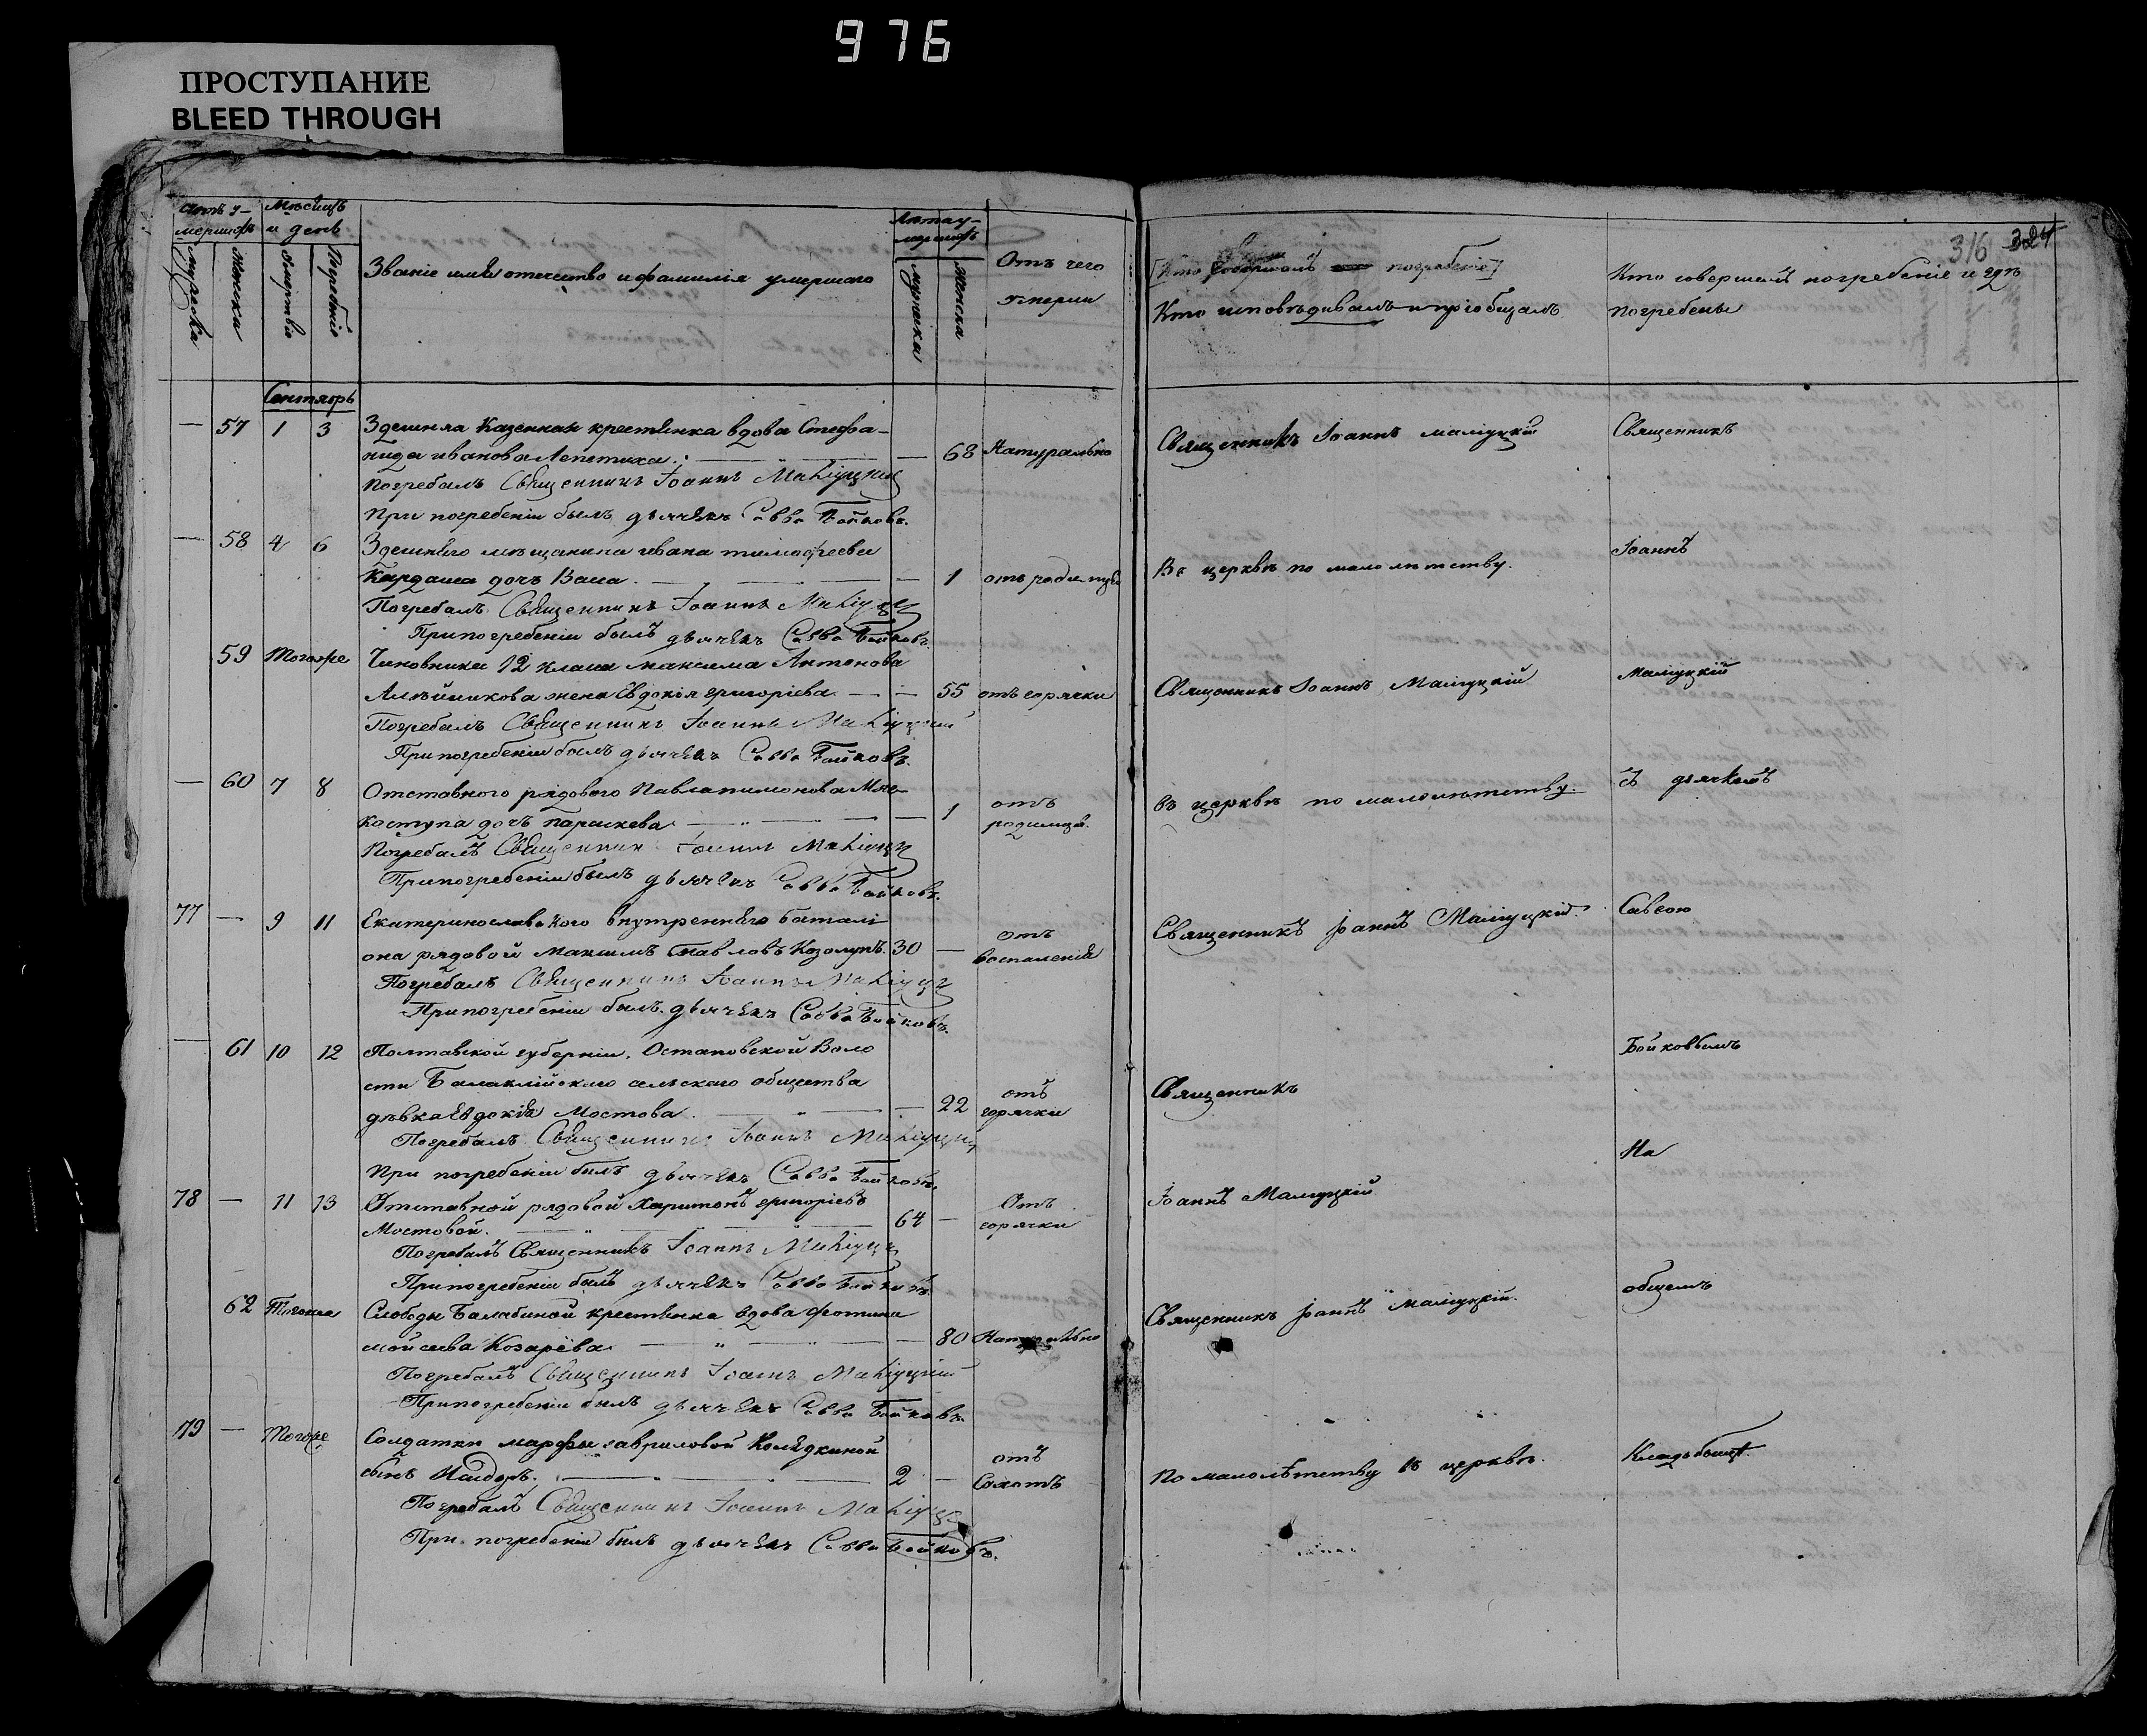 976
ПРОСТУПАНИЕ
BLEED THROUGH
316 324
Счетъ у-
мершихъ
Мѣсяцъ
и день
Лѣта у-
мершихъ
мужеска
женска
Смерти
Погребенія
Званіе имя отечество и фамилія умершаго
мужеска
женска
Отъ чего
умерли
погребеніе]
Кто исповѣдивалъ и пріобщалъ
Кто совершалъ погребеніе и гдѣ
погребены
Сентябрь
— 57 1 3 Здешняя Казенная крестьянка вдова Стефа-
нида иванова Лепетиха. — 68 Натурально Священникъ Іоаннъ малiуцкій Священникъ
Погребалъ Священникъ Іоаннъ Малiуцкий
При погребеніи былъ дьячекъ Савва Бойковъ.
— 58 4 6 Здешнего мещанина ивана тимофеева
Кардаша дочь Васса. — 1 отъ Въ церквѣ по малолѣтству. Іоаннъ
Погребалъ Священникъ Іоаннъ Малiуцкий
При погребеніи былъ дьячекъ Савва Бойковъ.
59 Тогоже Чиновника 12 класа максима Антонова
Алѣйникова жена Евдокія григоріева — — 55 отъ горячки Священникъ Іоаннъ Малiуцкій Малiуцкій
Погребалъ Священникъ Іоаннъ Малiуцкий
При погребеніи былъ дьячекъ Савва Бойковъ.
— 60 7 8 Отставного рядового Павла пимонова
дочь Параскева — — 1 отъ
родимца. въ церквѣ по малолѣтству. съ дьячкомъ
Погребалъ Священник Іоаннъ Малiуцкий
При погребеніи былъ дьячекъ Савва Бойковъ.
77 — 9 11 Екатеринославского внутреннего баталі
она рядовой Максимъ Павловъ Козолупъ. 30 — отъ
воспаленія Священникъ Іоаннъ Малiуцкій. Саввою
Погребалъ Священникъ Іоаннъ Малiуцкий
При погребеніи былъ дьячекъ Савва Бойковъ.
— 61 10 12 Полтавской губерніи. Остаповской Воло
сти Балаклійскаго сельскаго общества
дѣвка Евдокія Мостова. — — 22 отъ
горячки Священникъ Бойковымъ
Погребалъ Священникъ Іоаннъ Малiуцкий
При погребеніи былъ дьячекъ Савва Бойковъ.
На
78 — 11 13 Отставной рядовой Харитонъ григоріевъ
Мостовой. — 64 — Отъ
горячки Іоаннъ Малiуцкій
Погребалъ Священникъ Іоаннъ Малiуцкий
При погребеніи былъ дьячекъ Савва Бойковъ.
62 Тогоже Слободы Балабиной крестьянка вдова фотина
мойсеева Козарёва — — 80 Натурально Священникъ Іоаннъ Малiуцкій. общемъ
Погребалъ Священникъ Іоаннъ Малiуцкий
При погребеніи былъ дьячекъ Савва Бойковъ.
79 — Тогоже Солдатки марфы гавриловой Колѣдкиной
сынъ — 2 — отъ
По малолѣтству въ церквѣ. Кладьбищѣ.
Погребалъ Священникъ Іоаннъ Малiуцкий
При погребеніи былъ дьячекъ Савва Бойковъ.